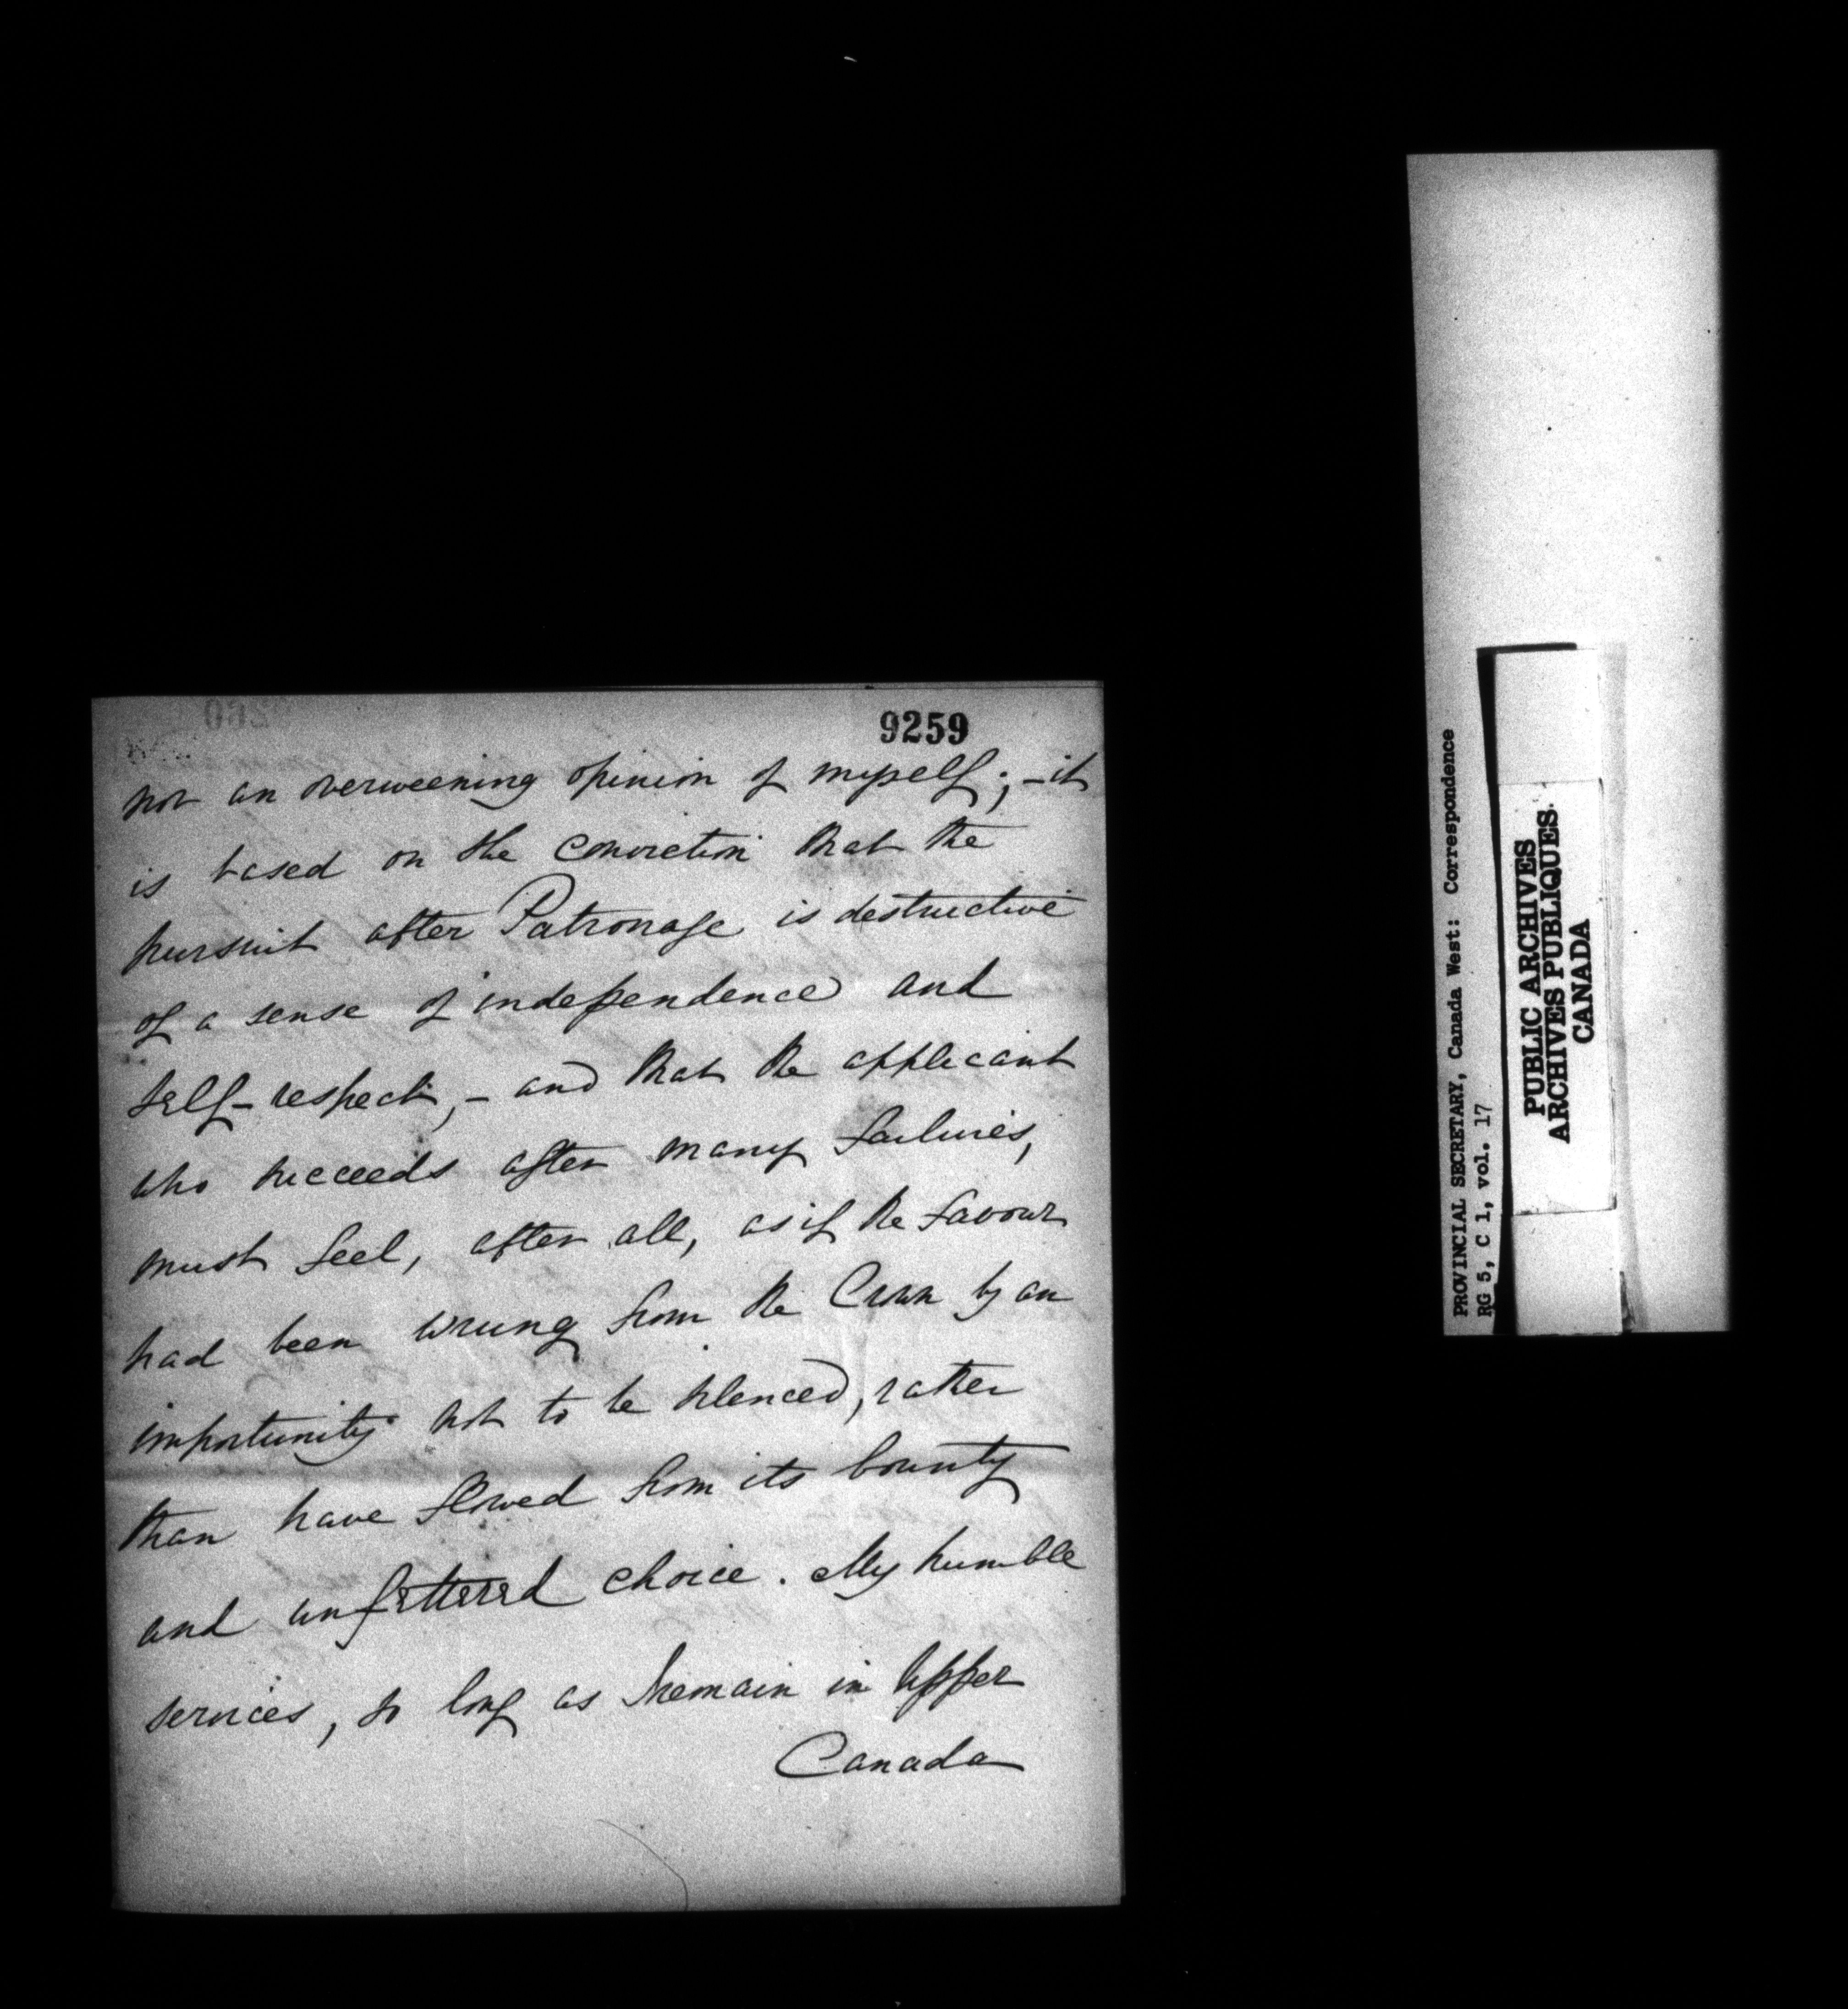 9259
not an overweening opinion of myself; - it
is based on the conviction that the
pursuit after Patronage is destructive
of a sense of independence and
self-respect, - and that the applicant
who succeeds after many failures,
must feel, after all, as if the favour
had been wrung from the Crown by an
importunity not to be silenced, rather
than have flowed from its bounty
and unfettered choice. My humble
services, so long as I remain in Upper
Canada
PROVINCIAL SECRETARY, Canada West: Correspondence
RG 5, C 1, vol. 17
PUBLIC ARCHIVES
ARCHIVES PUBLIQUES
CANADA